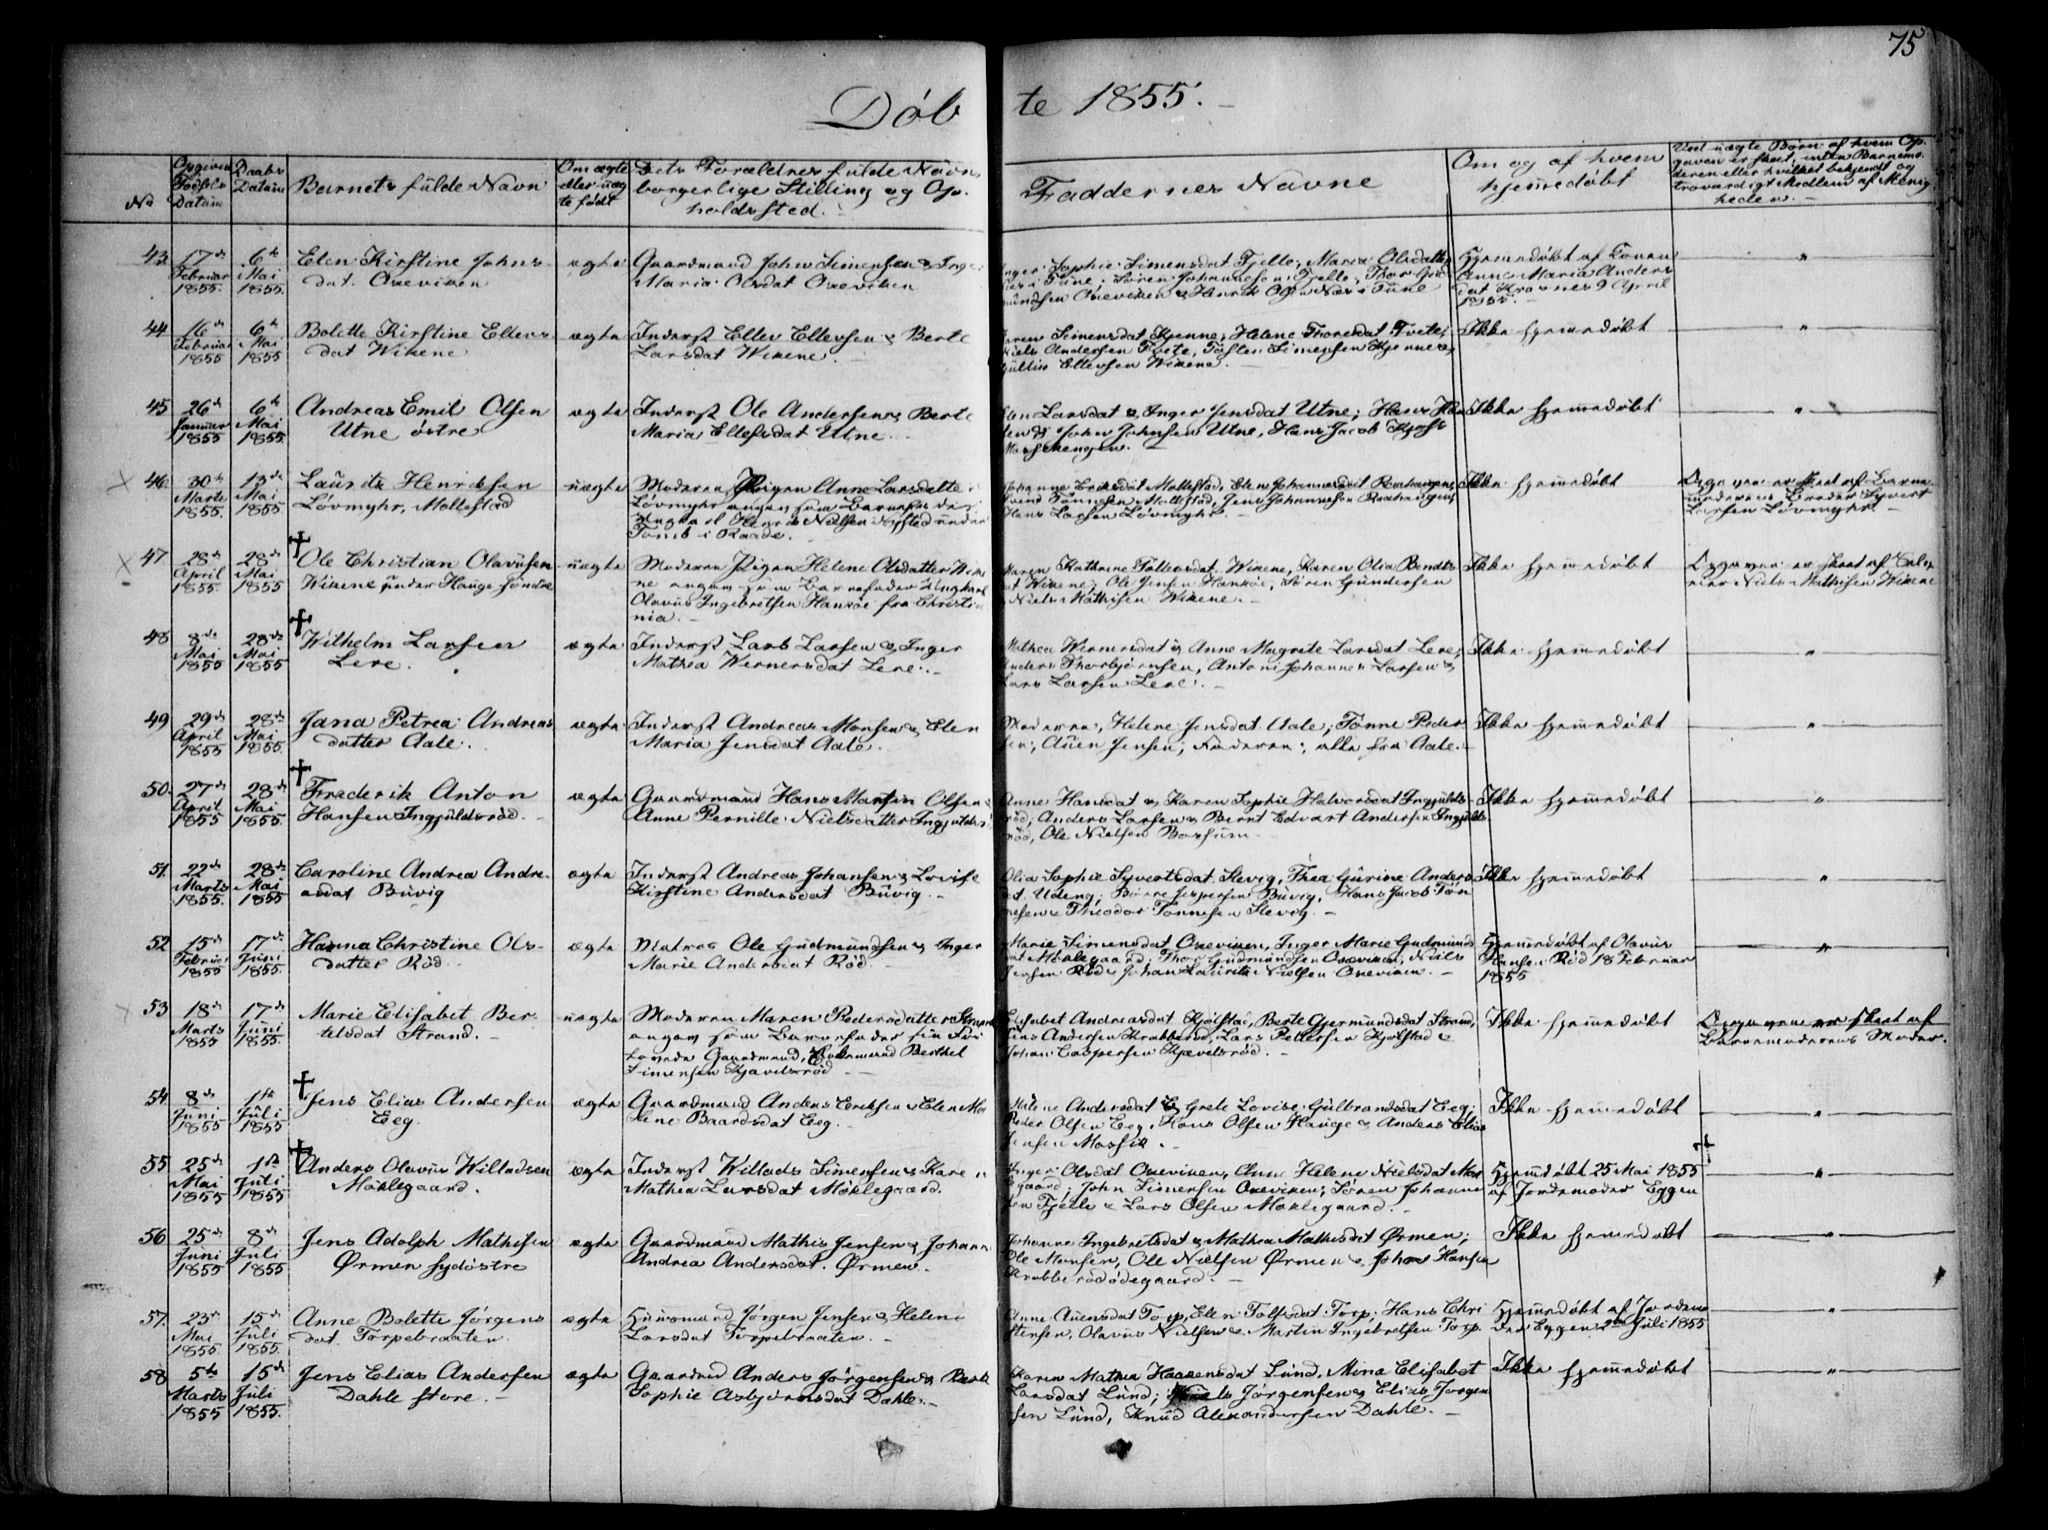 75
Döbte 1855.
No
Opgiven Fødsels Datum
Daabs Datum
Barnets fulde Navn
Om ægte eller uægte født
Dets Forældres fulde Navn, borgerlige Stilling og Opholdssted.
Faddernes Navne
Om og af hvem hjemmedøbt
Ved uægte Børn af hvem Opgaven er skeet, inten Barnemoderen eller hvilket bekjendt og troværdigt Medlem af Menigheden.
43. 17de Februar 1855. 6te Mai 1855.
Elen Kirstine Johns-
dat. Oxeviken
ægte
Gaardmand John Simensen & Inger
Maria Olsdat Oxeviken
Inger Sophie Simensdat Fjelle, Maria Olsdatter
Næs i Tune, Søren Johannesen Fjelle, Thor Gud
mundsen Oxeviken & Henrik Olsen Næs i Tune
Hjemmedøbt af Konen
Anne Maria Anders
dat Krosnes 9 April
1855.
44 16de Februar 1855 6te Mai 1855
Bolette Kirstine Ellevs
dat Wikene
ægte
Inderst Ellev Ellevsen & Berte
Larsdat Wikene.
Karen Simensdat Kjenne, Helene Thoresdat Tvete,
Niels Andersen Tvete, Tosten Simensen Kjenne &
Gullik Ellevsen Wikene.
Ikke hjemmedøbt
45 26de Januar 1855 6te Mai 1855.
Andreas Emil Olsen
Utne östre
ægte
Inderst Ole Andersen & Berte
Maria Ellefsdat Utne.
Elen Larsdat & Inger Jensdat Utne; Hans
John Johnsen Utne, Hans Jacob
Ikke hjemmedøbt
46. 30te Marts 1855. 13de Mai 1855.
Laurits Henriksen
Lövmyhr, Mallestad
uægte
Moderen Pigen Anne Larsdatter
Lövmyhr angav som Barnefader
Ungkarl Henrik Nielsen Nysted under
Tomb i Raade.
Johanne Eriksdat Mallestad, Elen Johannesdat Raahaugen,
Svend Tønnesen Mallestad, Jens Johannesen Raahaugen,
Hans Larsen Lövmyhr.
Ikke hjemmedøbt
Opgaven er skeet af Barne
moderens Broder Syvert
Larsen Lövmyhr.
47 28de April 1855. 28de Mai 1855
Ole Christian Olavusen
Wikene under Hauge søndre
uægte
Moderen Pigen Helene Olsdatter Wike
ne angav som Barnefader Ungkarl
Olavus Ingebretsen Hankøe fra Christia
nia.
Karen Kathrine Tolleosdat Wikene, Karen Olia Bendts
dat Wikene, Ole Jensen Hankøe, Søren Gundersen
& Niels Mathisen Wikene.
Ikke hjemmedøbt
Opgaven er skeet af
Niels Mathisen Wikene
48 8de Mai 1855 28de Mai 1855
Wilhelm Larsen
Lere.
ægte
Inderst Lars Larsen & Inger
Mathea Wernersdat Lere.
Mathea Wernersdat & Anne Magrete Larsdat Lere,
Anders Thorbjørnsen, Anton Johannes Larsen &
Lars Larsen Lere.
Ikke hjemmedøbt
49 29de April 1855 28de Mai 1855.
Jana Petrea Andreas
datter Aale.
ægte
Inderst Andreas Monsen & Elen
Maria Jensdat Aale.
Moderen, Helene Jensdat Aale, Tønne Peder
sen, Auen Jensen, Faderen, alle fra Aale.
Ikke hjemmedøbt
50. 27de April 1855 28de Mai 1855.
Frederik Anton
Hansen Ingjuldsrød.
ægte
Gaardmand Hans Martin Olsen &
Anne Pernille Nielsdatter Ingjulds
Anne Hansdat & Karen Sophie Halvorsdat Ingjulds-
rød, Anders Larsen & Bernt Edvart Andersen Ingjulds
rød, Ole Nielsen Borhum.
Ikke hjemmedøbt
51. 22de Marts 1855. 28de Mai 1855
Caroline Andrea Andre-
asdat Buvig
ægte
Inderst Andreas Johansen & Lovise
Kirstine Andersdat Buvig.
Olia Sophie Syvertsdat Slevig, Thea Gurine Anders
dat Udeng, Børre Jespersen Buvig, Hans Jacob Tøn
nesen & Theodor Tønnesen Slevig.
Ikke hjemmedøbt
52 15de Februar 1855 17de Juni 1855.
Hanna Christine Ols-
datter Rød.
ægte
Matros Ole Gudmundsen & Inger
Marie Andersdat Rød
Marie Simensdat Oxeviken, Inger Marie Gudmunds
dat Møklegaard, Thor Gudmundsen Oxeviken, Niels
Jensen Rød & Johan Laurits Nielsen Oxeviken.
Hjemmedøbt af Olavus
Hansen Rød 18 Februar
1855
53 18de Marts 1855 17de Juni 1855
Marie Elisabet Ber-
telsdat Strand.
uægte
Moderen Maren Pedersdatter Strand
angav som Barnefader sin For
lovede Gaardmand, Enkemand Berthel
Simensen Kjavelsrød
Elisabet Andreasdat Kjølstad, Berte Gjermundsdat Strand,
Jens Andersen Krabberød, Lars Pettersen Kjølstad &
Johan Caspersen Kjavelsrød.
Ikke hjemmedøbt
Opgaven er skeet af
Barnemoderens Moder.
54. 8de Juni 1855 1ste Juli 1855.
Jens Elias Andersen
Eeg.
ægte
Gaardmand Anders Eriksen & Elen Ma
lene Baardsdat Eeg.
Malene Andersdat & Grete Lovise Gulbrandsdat Eeg,
Peder Olsen Eeg, Hans Olsen Hauge & Anders Elias
Jensen Mosfia.
Ikke hjemmedøbt
55 25de Mai 1855 1ste Juli 1855
Anders Olavus Willadsen
Møklegaard.
ægte
Inderst Willads Simensen & Karen
Mathea Larsdat Møklegaard.
Inger Olsdat Oxeviken, Anne Helene Nielsdat Møk
legaard, John Simensen Oxeviken, Søren Johanne
sen Fjelle & Lars Olsen Møklegaard.
Hjemmedøbt 25 Mai 1855
af Jordemoder Eggen
56 25de Juni 1855 8de Juli 1855
Jens Adolph Mathisen
Ørmen sydøstre
ægte
Gaardmand Mathis Jensen & Johanne
Andrea Andersdat. Ørmen.
Johanne Ingebretsdat & Mathea Mathisdat Ørmen,
Ole Monsen, Ole Nielsen Ørmen & Johan Hansen
Krabberødødegaard.
Ikke hjemmedøbt
57. 23de Mai 1855. 15de Juli 1855.
Anne Bolette Jørgens
dat. Torpebraaten.
ægte
Huusmand Jørgen Jensen & Helene
Larsdat Torpebraaten.
Anne Auensdat Torp, Elen Tolfsdat Torp, Hans Chri
stensen, Olavus Nielsen & Martin Ingebretsen Torp.
Hjemmedøbt af Jordemo
der Eggen 2den Juli 1855
58 5te Marts 1855 15de Juli 1855.
Jens Elias Andersen
Dahle store.
ægte
Gaardmd Anders Jørgensen & Berte
Sophie Asbjørnsdat Dahle.
Karen Mathea Haakensdat Lund, Mina Elisabet
Larsdat Lund, Niels Jørgensen & Elias Jørgen
sen Lund, Knud Alexandersen Dahle.
Ikke hjemmedøbt